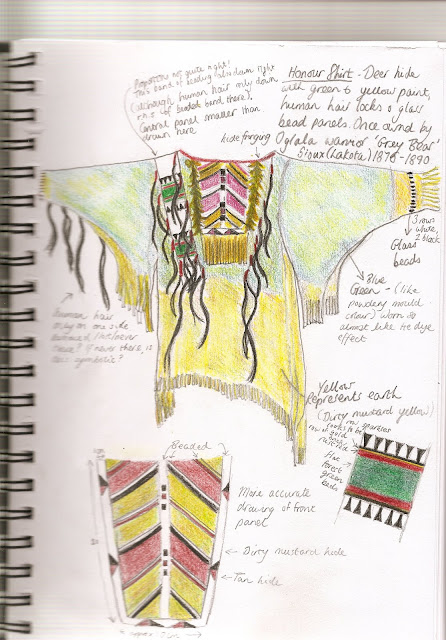 Proportions not quite right!
This band of beading runs down right
(although human hair only down
r.h.s of beaded band there).
Central panel smaller than
drawn here
Honour Shirt - Deer hide
with green & yellow paint,
human hair locks & glass
bead panels. Once owned by
Oglala warrior 'Grey Bear'
Sioux (Lakota) 1870-1890
hide fringing
3 rows
white,
2 black
Glass
beads
Blue
Green - (like
powdery mould
colour) Worn so
almost like tie dye
effect
Human hair
only on one side
symbolic?
Yellow
Represents earth
(Dirty mustard yellow)
row of gold
forest
green
beads
Beaded
More accurate
drawing of front
panel
Dirty mustard hide
Tan hide